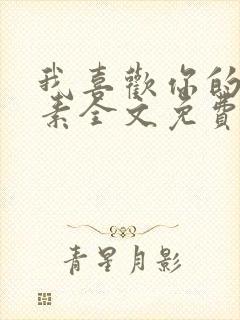 我喜歡你的
素全文免費
青星月影